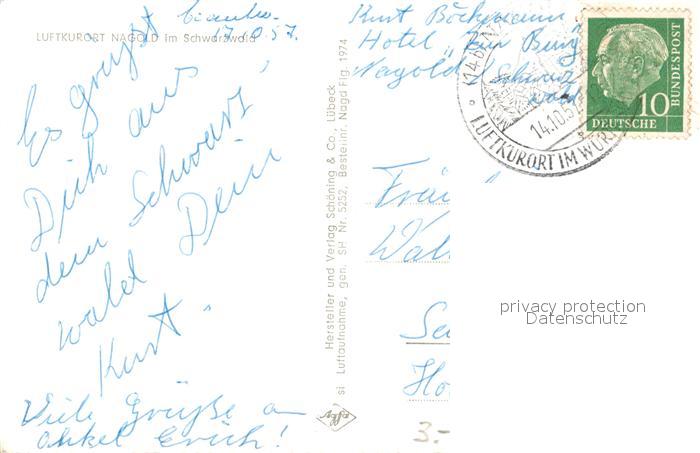 LUFTKURORT NAGOLD im Schwarzwald
Es grüsst
Dich aus
dem Schwarz
wald Dein
Kurt.
Viele Grüße an
onkel Erich!
Hersteller und Verlag Schöning & Co., Lübeck
si Luftaufnahme, gen. SH Nr. 5252, Bestellnr. Nagd Flg. 1974
Agfa
Kurt Böckmann
Hotel „Zur Burg
Nagold / Schwarz
wald
LUFTKURORT IM WÜR
14.10.5
10
DEUTSCHE
BUNDESPOST
Fräu
Wal
Ho
privacy protection
Datenschutz
3.-